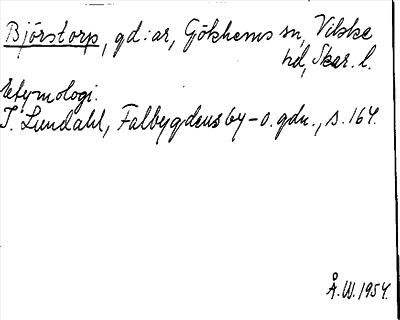 Björstorp, gd:ar, Gökhems sn, Vilske
hd, Skar. l.
Etymologi.
I. Lundahl, Falbygdens by- o. gdn., s. 164.
Å.W.1954.